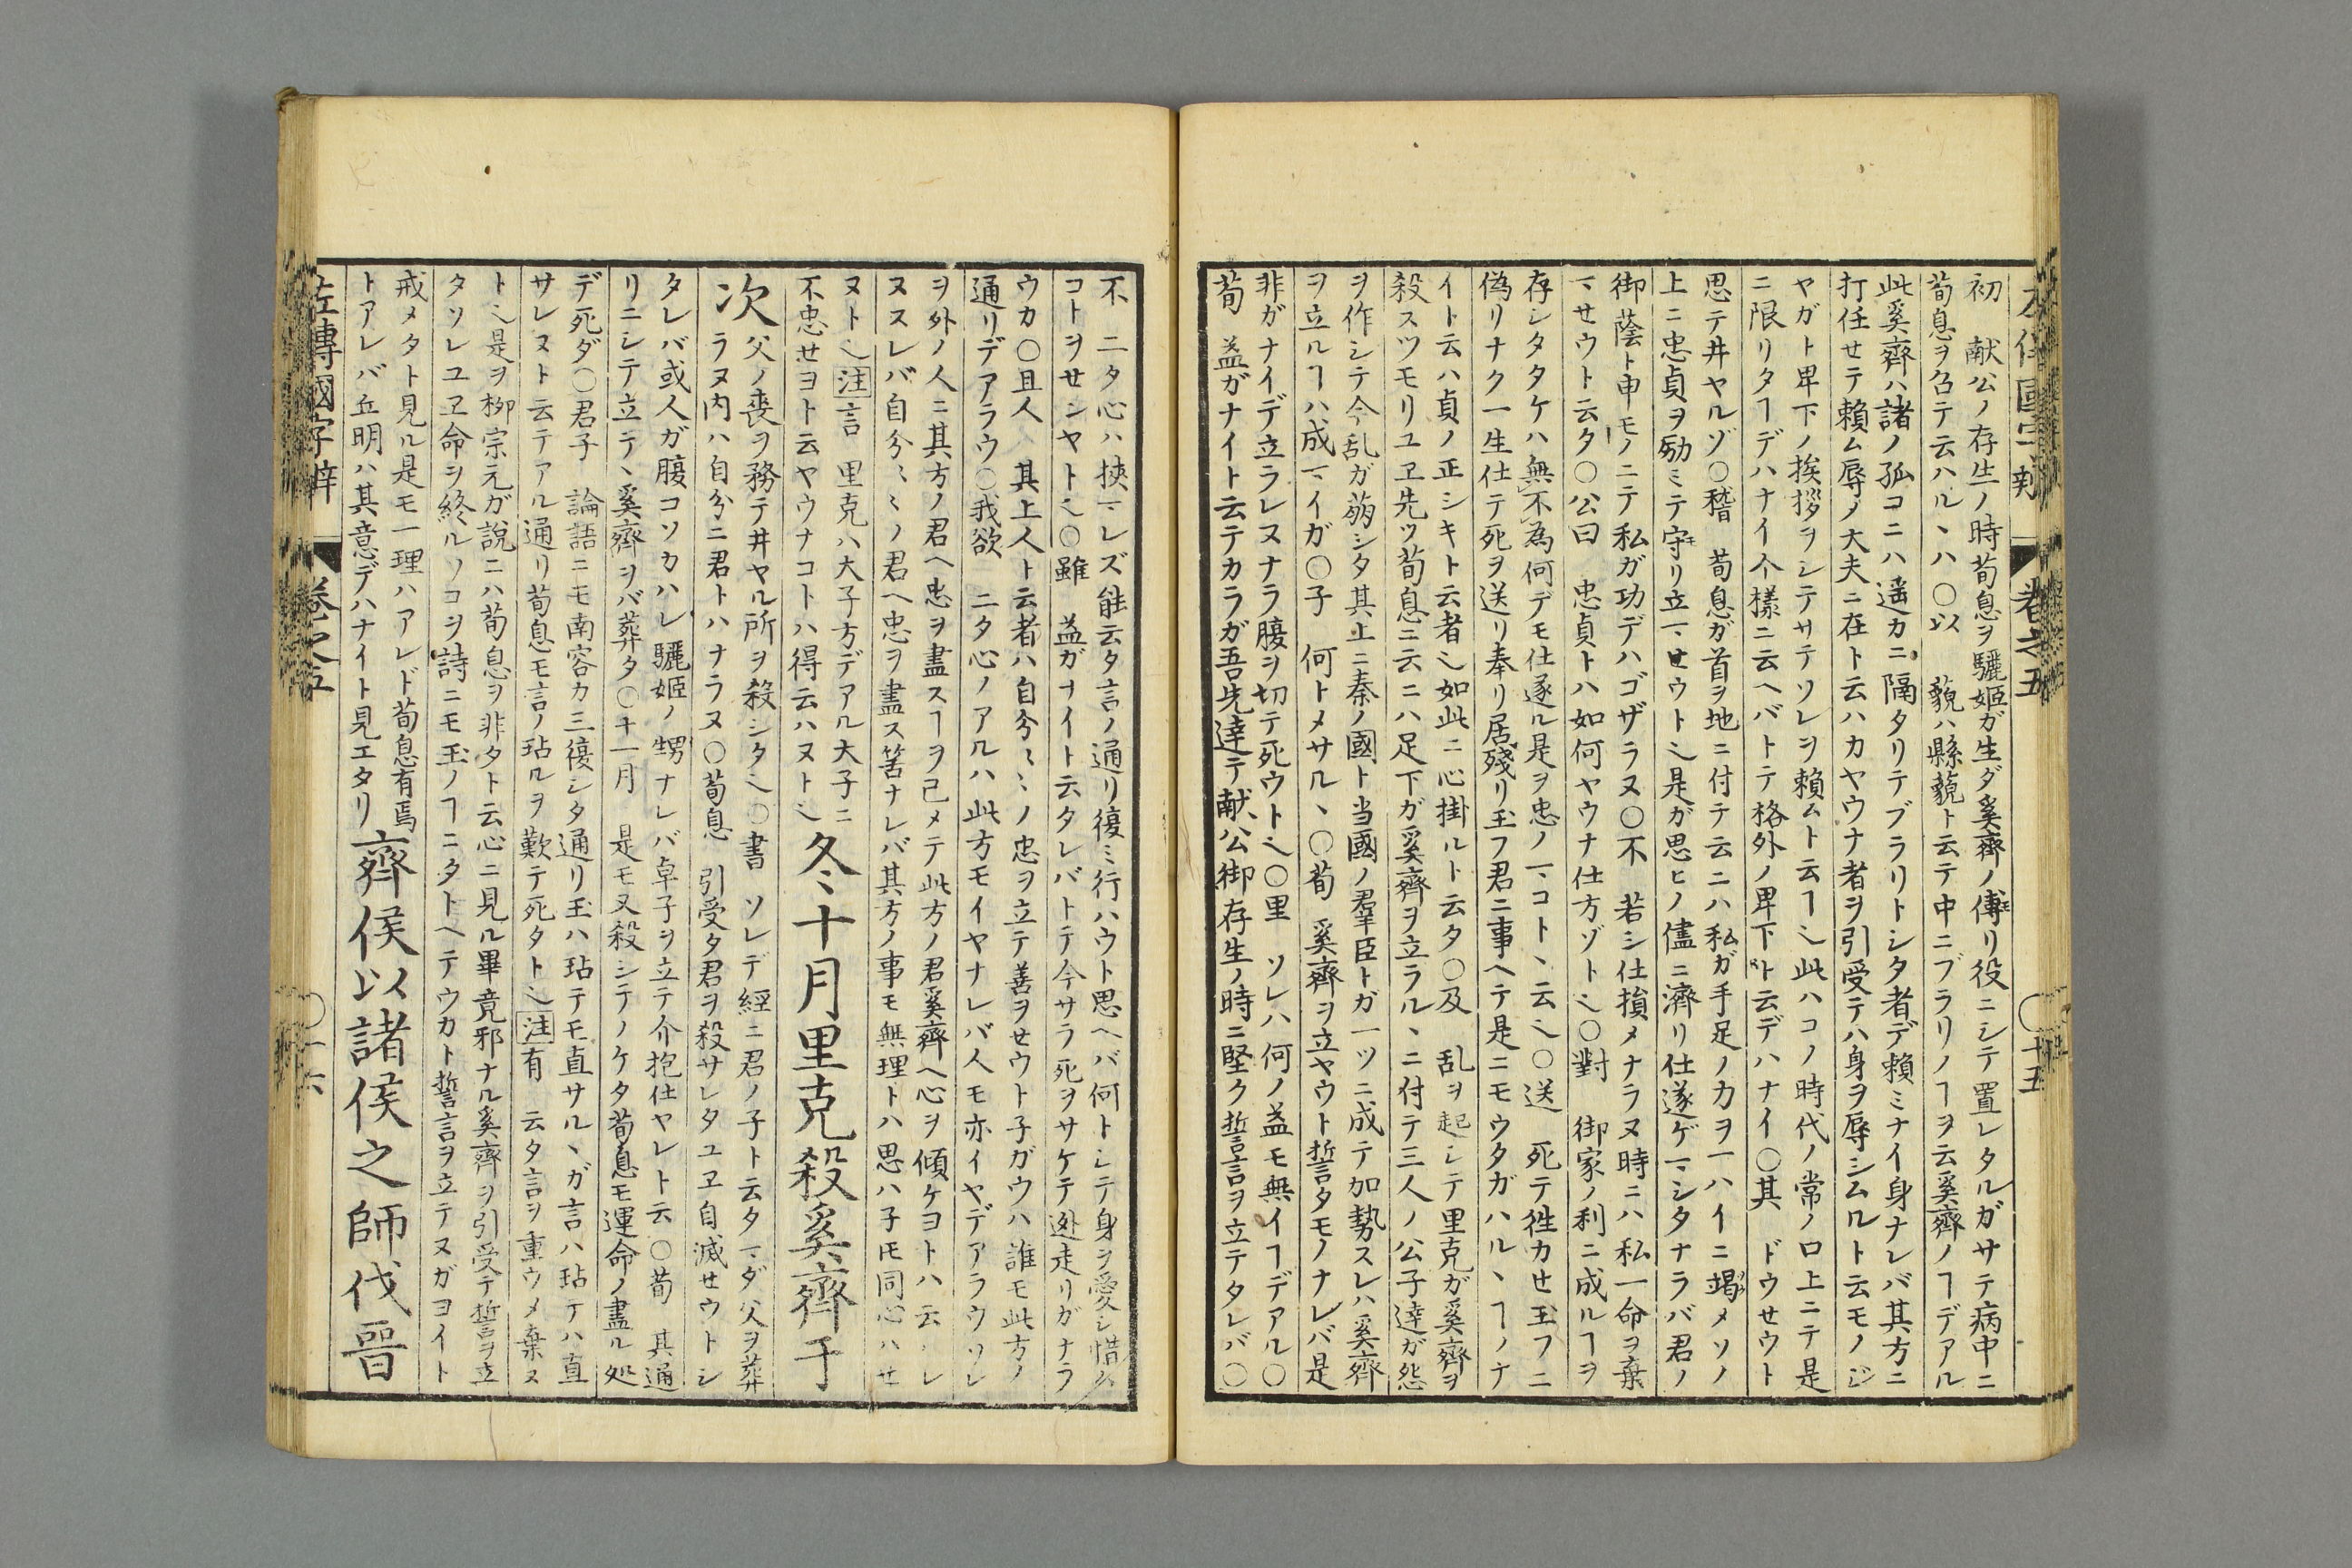 左傳國字辨 卷之五 ○十五
初 献公ノ存生ノ時荀息ヲ驪姬ガ生ダ奚齊ノ傅リ役ニシテ置レタルガサテ病中ニ
荀息ヲ召テ云ハルヽハ○以 藐ハ縣藐ト云テ中ニブラリノヿヲ云奚齊ノヿデアル
此奚齊ハ諸ノ孤コニハ遥カニ隔タリテブラリトシタ者デ頼ミナイ身ナレバ其方ニ
打任セテ頼ム辱ノ大夫ニ在ト云ハカヤウナ者ヲ引受テハ身ヲ辱シムルト云モノジ
ヤガト卑下ノ挨拶ヲシテサテソレヲ頼ムト云ヿ乄此ハコノ時代ノ常ノ口上ニテ是
ニ限リタヿデハナイ今様ニ云ヘバトテ格外ノ卑下ト云デハナイ○其 ドウせウト
思テ井ヤルゾ○稽 荀息ガ首ヲ地ニ付テ云ニハ私ガ手足ノカヲ一ハイニ竭メソノ
上ニ忠貞ヲ励ミテ守リ立マせウト乄是ガ思ヒノ儘ニ濟リ仕遂ゲマシタナラバ君ノ
御蔭ト申モノニテ私ガ功デハゴザラヌ○不 若シ仕損メナラヌ時ニハ私一命ヲ棄
マせウト云タ○公曰 忠貞トハ如何ヤウナ仕方ゾト乄○對 御家ノ利ニ成ルヿヲ
存シタタケハ無不為何デモ仕遂ル是ヲ忠ノマコトヽ云乄○送 死テ徃カせ玉フニ
偽リナク一生仕テ死ヲ送リ奉リ居残リ玉フ君ニ事ヘテ是ニモウタガハルヽヿノナ
イト云ハ貞ノ正シキト云者乄如此ニ心掛ルト云タ○及 乱ヲ起シテ里克ガ奚齊ヲ
殺スツモリユヱ先ツ荀息ニ云ニハ足下ガ奚齊ヲ立ラルヽニ付テ三人ノ公子達ガ怨
ヲ作シテ今乱ガ萌シタ其上ニ秦ノ國ト当國ノ羣臣トガ一ツニ成テ加勢スレハ奚齊
ヲ立ルヿハ成マイガ○子 何トメサルヽ○荀 奚齊ヲ立ヤウト誓タモノナレバ是
非ガナイデ立ラレヌナラ腹ヲ切テ死ウト乄○里 ソレハ何ノ益モ無イヿデアル○
荀 益ガナイト云テカラガ吾先達テ献公御存生ノ時ニ堅ク誓言ヲ立テタレバ○
不 二タ心ハ挾マレズ能云タ言ノ通リ復ミ行ハウト思ヘバ何トシテ身ヲ愛シ惜ム
コトヲせンヤト乄○雖 益ガナイト云タレバトテ今サラ死ヲサケテ逃走リガナラ
ウカ○且人 其上人ト云者ハ自分〱ノ忠ヲ立テ善ヲせウト子ガウハ誰モ此方ノ
通リデアラウ○我欲 二タ心ノアルハ此方モイヤナレバ人モ亦イヤデアラウソレ
ヲ外ノ人ニ其方ノ君ヘ忠ヲ盡スヿヲ已メテ此方ノ君奚齊ヘ心ヲ傾ケヨトハ云ハレ
ヌスレバ自分〱ノ君ヘ忠ヲ盡ス筈ナレバ其方ノ事モ無理トハ思ハ子ドモ同心ハせ
ヌト乄注言 里克ハ大子方デアル大子ニ
不忠せヨト云ヤウナコトハ得云ハヌト乄冬十月里克殺奚齊于
次父ノ喪ヲ務テ井ヤル所ヲ殺シタ乄○書 ソレデ經ニ君ノ子ト云タマダ父ヲ葬
ラヌ内ハ自分ニ君トハナラヌ○荀息 引受タ君ヲ殺サレタユヱ自滅せウトシ
タレバ或人ガ腹コソカハレ驪姬ノ甥ナレバ卓子ヲ立テ介抱仕ヤレト云○荀 其通
リニシテ立テヽ奚齊ヲバ葬タ○十一月 是モ又殺シテノケタ荀息モ運命ノ盡ル処
デ死ダ○君子 論語ニモ南容カ三復シタ通リ玉ハ玷テモ直サルヽガ言ハ玷テハ直
サレヌト云テアル通リ荀息モ言ノ玷ルヲ歎テ死タト乄注有 云タ言ヲ重ウメ棄ヌ
ト乄是ヲ柳宗元ガ説ニハ荀息ヲ非タト云心ニ見ル畢竟邪ナル奚齊ヲ引受テ誓ヲ立
タソレユヱ命ヲ終ルソコヲ詩ニモ玉ノヿニタトヘテウカト誓言ヲ立テヌガヨイト
戒メタト見ル是モ一理ハアレド荀息有焉
トアレバ丘明ハ其意デハナイト見エタリ齊侯以諸侯之師伐晉
左傳國字辨 卷之五 ○十六